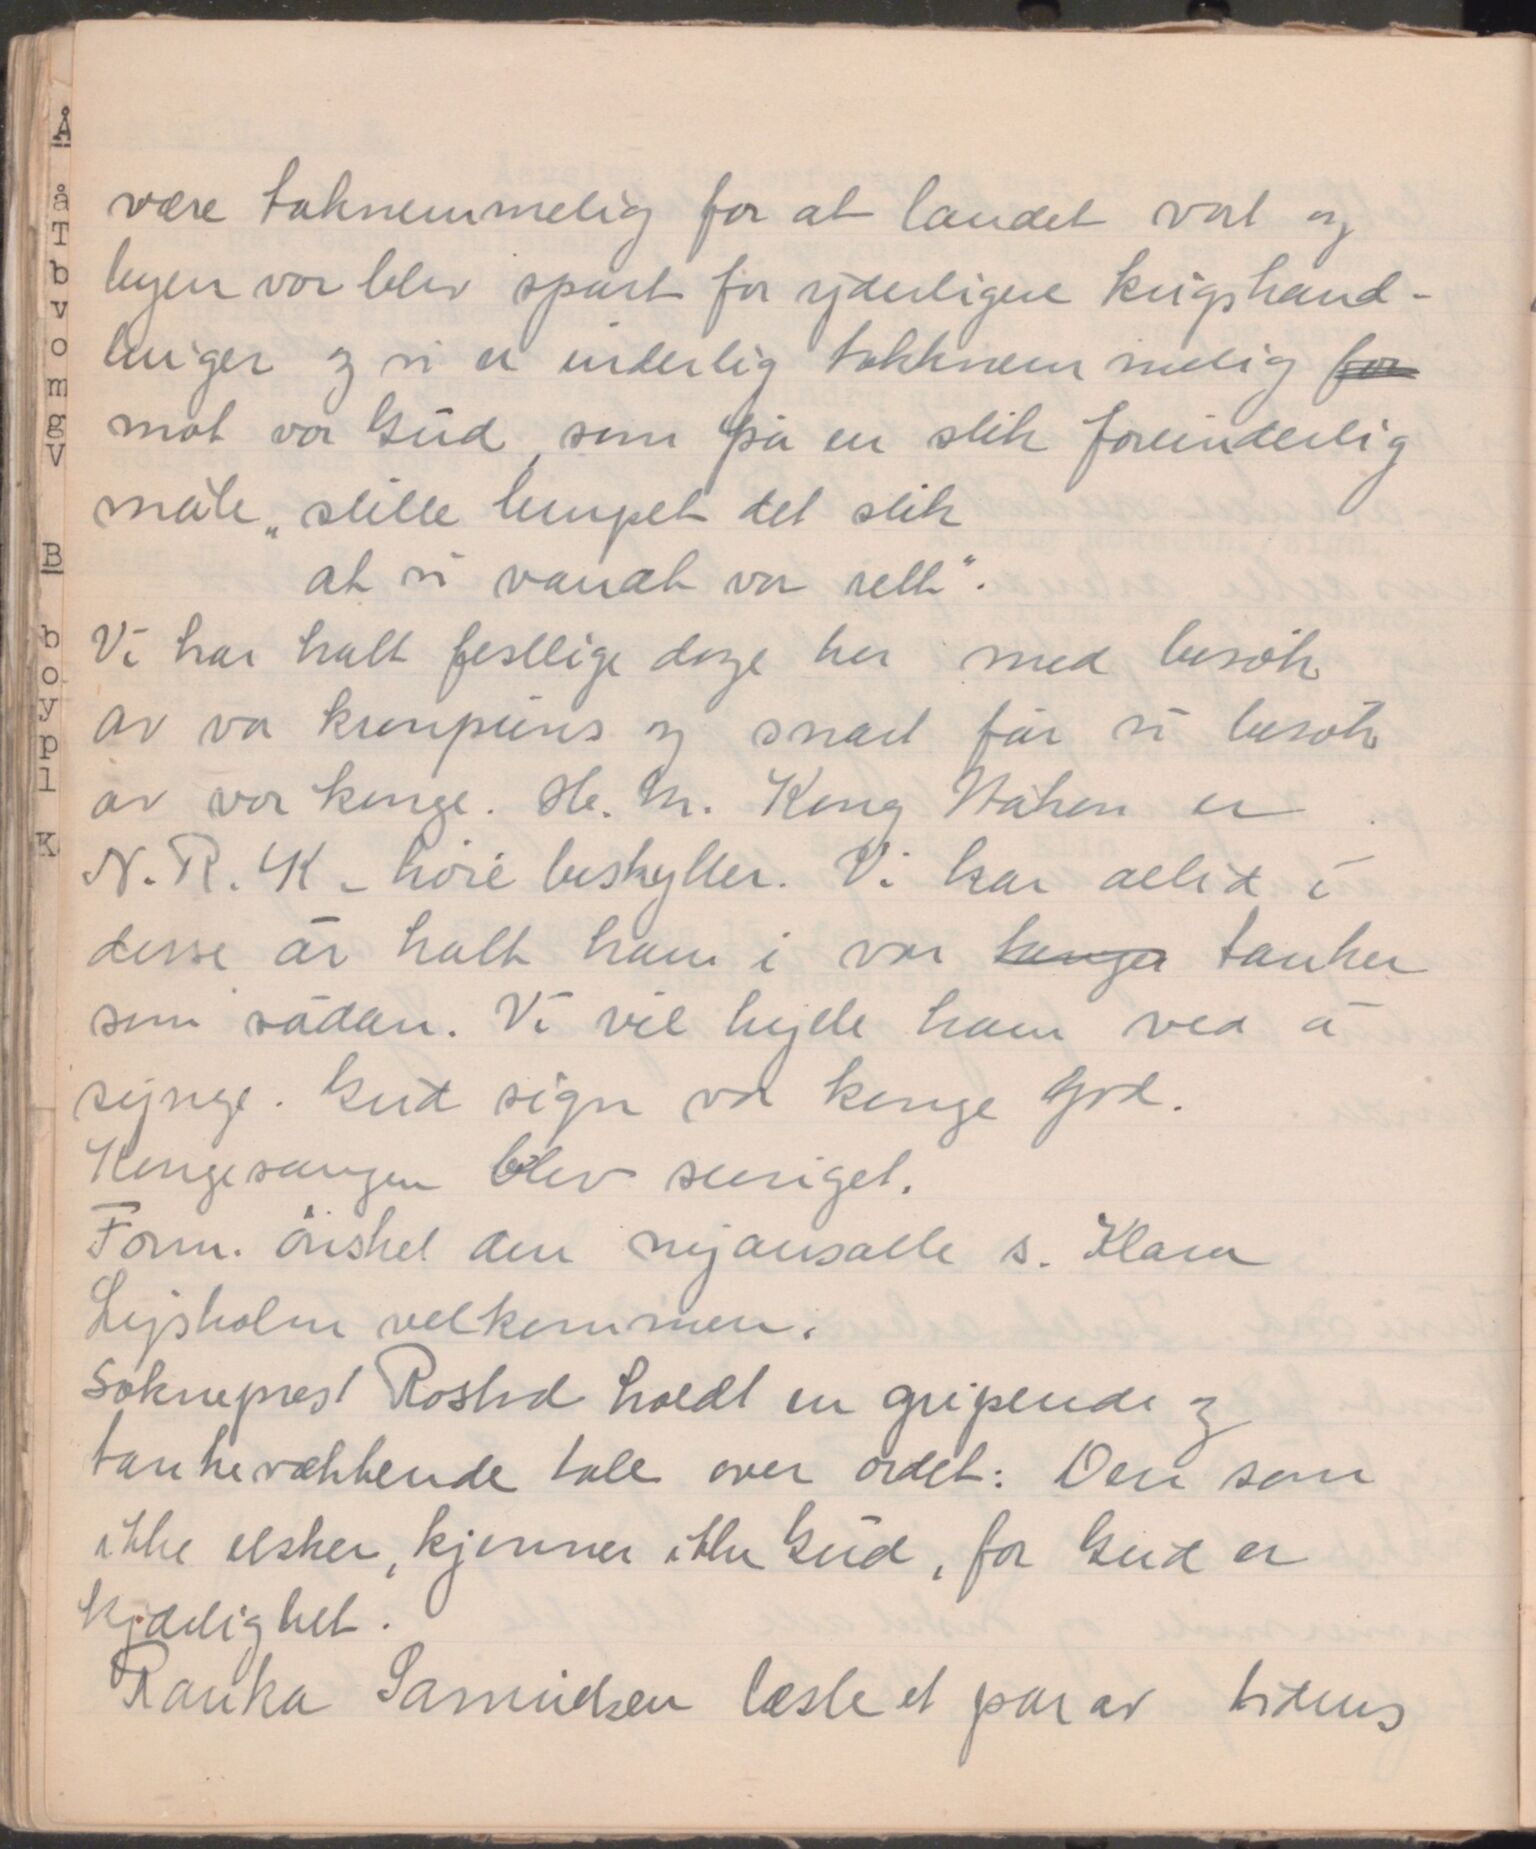 være taknemmelig for at landet vort og
byen vor blev spart for yderligere krigshand-
linger og vi er inderlig takknemmelig for
mot vor Gud, som på en slik forunderlig
måte „stille lempet det slik
at vi vandt vor rett".
Vi har hatt festlige dage her med besök
av vor kronprins og snart får vi besök
av vor konge. H. M. Kong Håkon er
N. R. K - höie beskytter. Vi har alltid i
desse år hatt ham i vor tanker
som sådan. Vi vil hylle ham ved å
synge. Gud sign vor konge god.
Kongesangen blev sunget.
Form. önsket den nyansatte s. Klara
Lysholm velkommen.
Soknepres! Rostad holdt en gripende og
tankevekkende tale over ordet: Den som
ikke elsker, kjenner ikke Gud, for Gud er
kjærlighet.
Ranka Samuelsen læste et par av tidens
Å
å
T
b
v
o
m
g
V
B
b
o
y
p
l
K